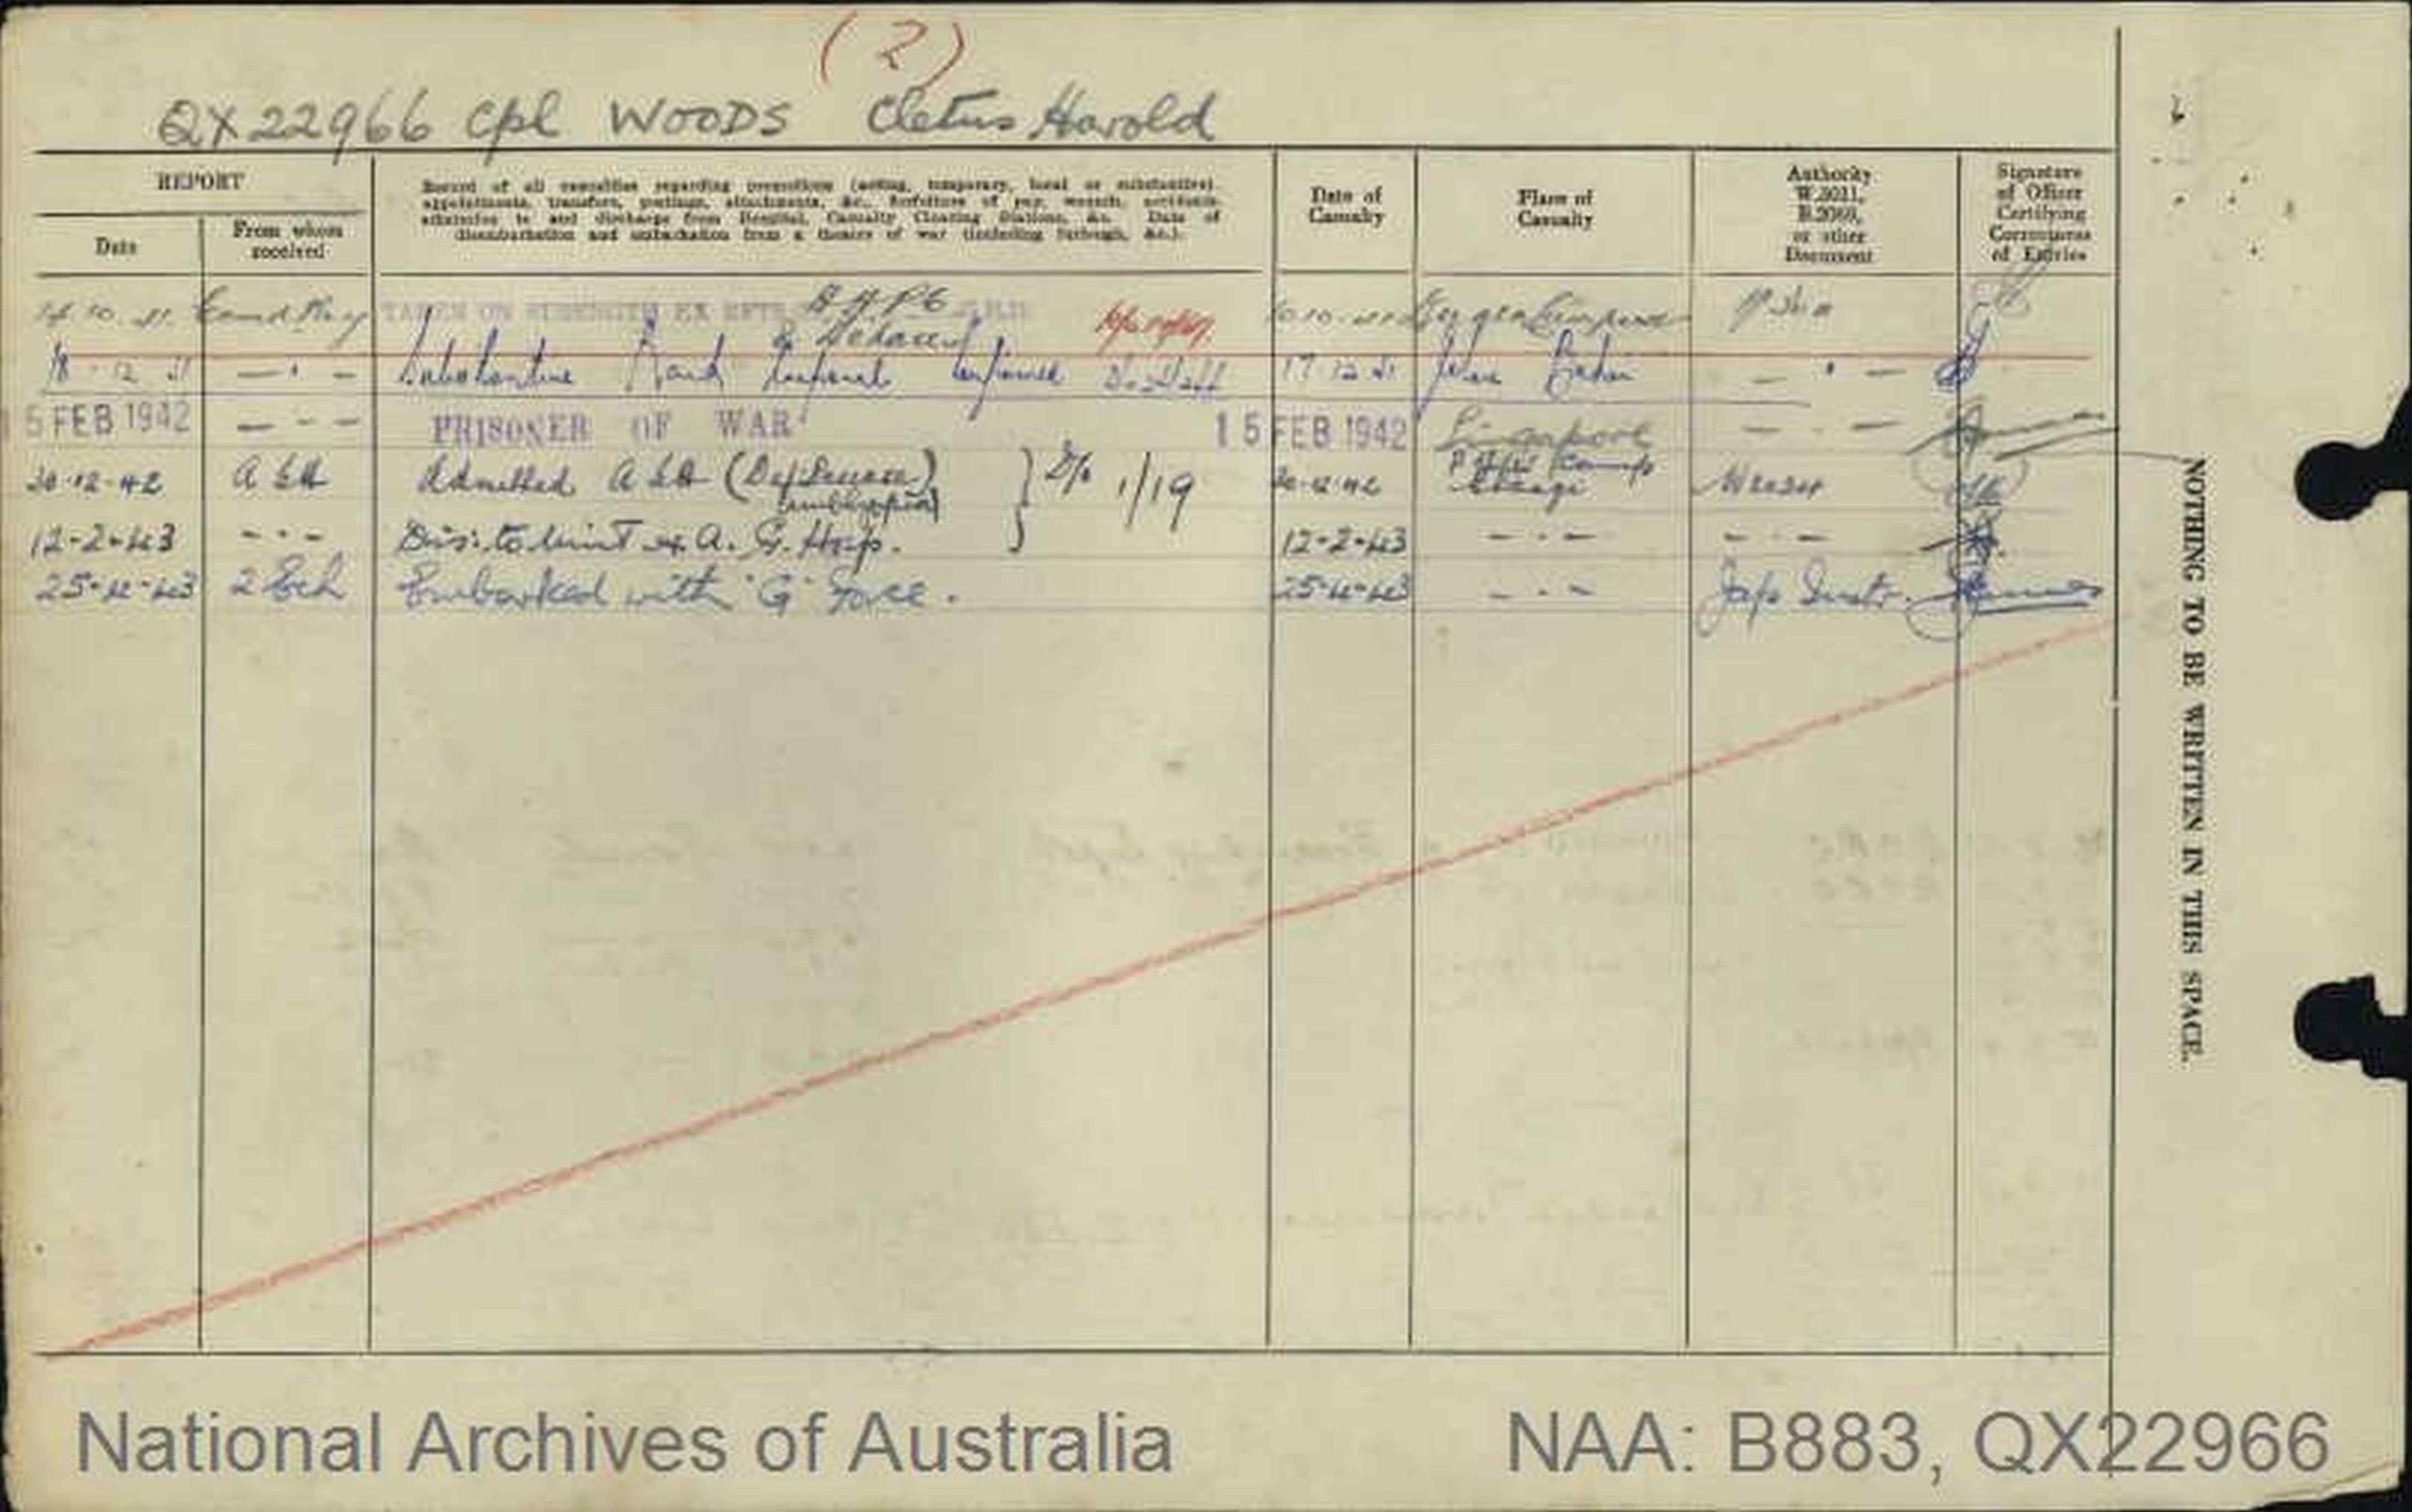 (2)
QX22966 Cpl WOODS Cletus Harold
REPORT
Date
From whom received
Record of all casualties regarding promotions (acting, temporary, local or substantive),
appointments, transfers, postings, attachments, &c., forfeiture of pay, wounds, accidents,
admission to and discharge from Hospital, Casualty Clearing Stations, &c. Date of
disembarkation and embarkation from a theatre of war (including furlough, &c.).
Date of Casualty
Place of Casualty
Authority W.3011, B.2069, or other Document
Signature of Officer Certifying Correctness of Entries
14.10.41 TAKEN ON STRENGTH EX 10.10.41
18.12.41 — " — Substantive Rank Corporal Confirmed 17.12.41 — " —
15 FEB 1942 — - — PRISONER OF WAR 15 FEB 1942 Singapore — - —
30.12.42 AGH Admitted AGH (Def. Amblyopia) 1/19 30.12.42 P.O.W. Camp Changi
12-2-43 - - - Dis: to Unit ex A. G. Hosp. 12-2-43 — - — — - —
25-4-43 2 Ech Embarked with "G" Force. 25-4-43 — - — Jap Instr.
NOTHING TO BE WRITTEN IN THIS SPACE.
National Archives of Australia
NAA: B883, QX22966